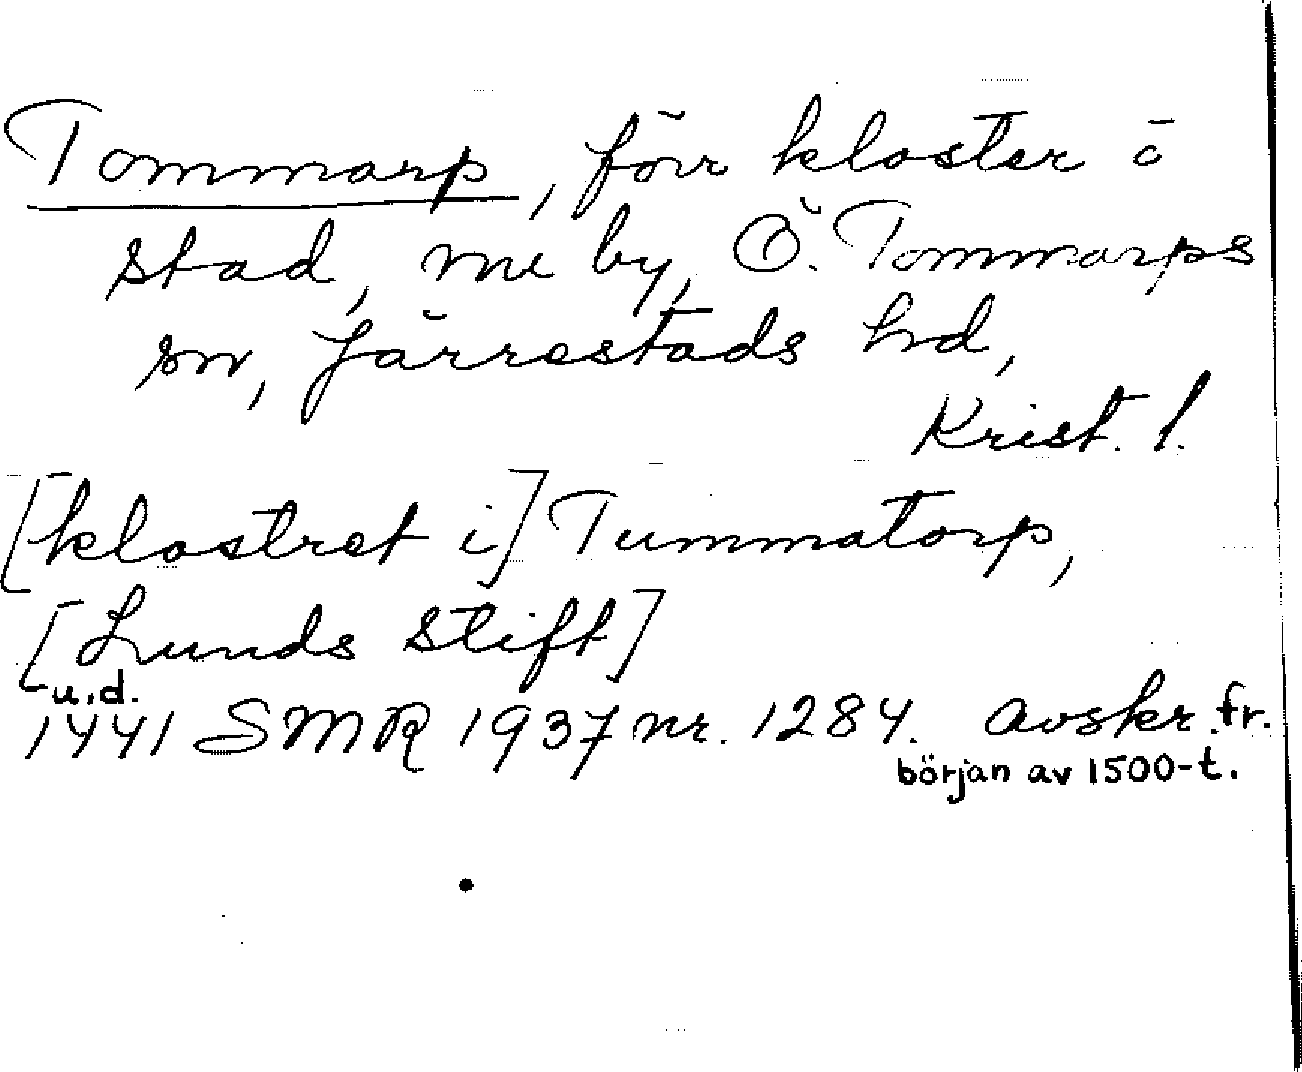 Tommarp, förr kloster o
stad, nu by, Ö. Tommarps
sn, Järrestads hd,
Krist. l.
[klostret i] Tummatorp,
[Lunds stift]
u.d.
1441 SMR 1937 nr. 1284. Avskr. fr.
början av 1500-t.